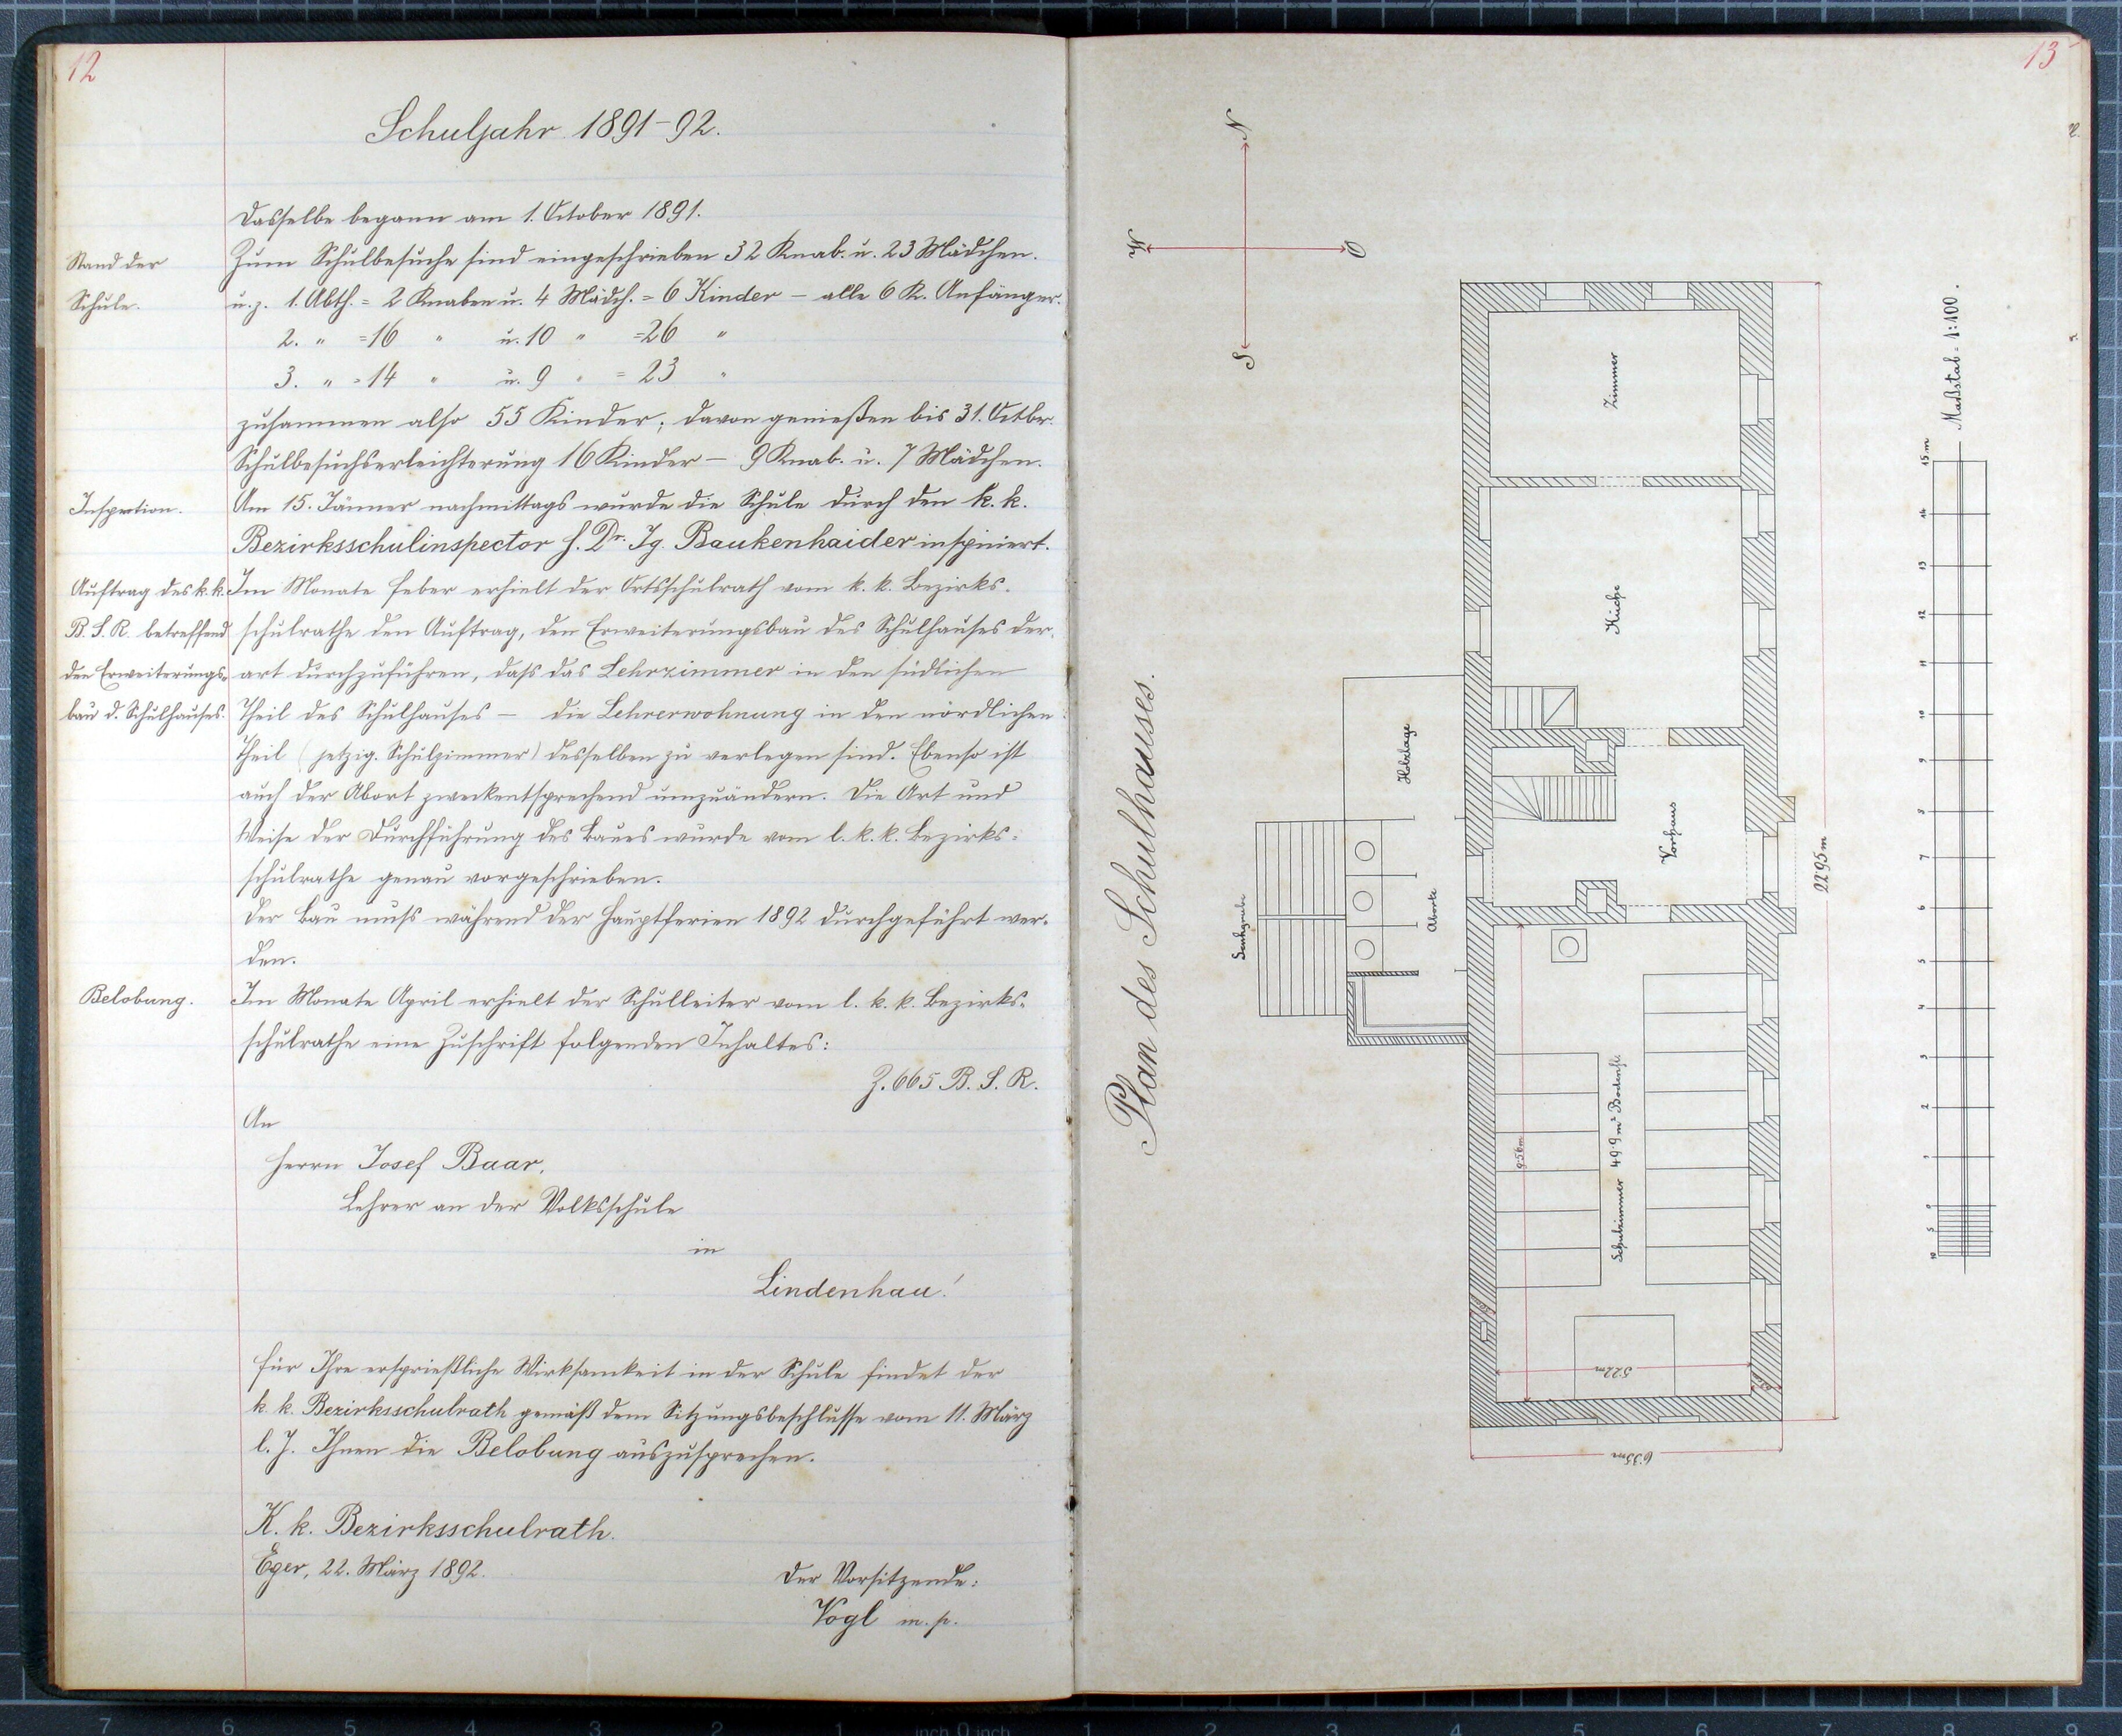 12
Schuljahr 1891-92.
Dasselbe begann am 1. October 1891.
Stand der
Schule.
Zum Schulbesuche sind eingeschrieben 32 Knab. u. 23 Mädchen.
u. z. 1. Abth. = 2 Knaben u. 4 Mädch. = 6 Kinder – alle 6 K. Anfänger.
2. " =16 " u. 10 " =26 "
3. " =14 " u. 9 " = 23 "
zusammen also 55 Kinder; davon genießen bis 31. Octbr.
Schulbesuchserleichterung 16 Kinder – 9 Knab. u. 7 Mädchen.
Inspection.
Am 15. Jänner nachmittags wurde die Schule durch den k. k.
Bezirksschulinspector H. Dr. Ig. Baukenhaider inspiciert.
Auftrag des k. k.
B. S. R. betreffend
den Erweiterungs-
bau d. Schulhauses.
Im Monate Feber erhielt der Ortsschulrath vom k. k. Bezirks-
schulrathe den Auftrag, den Erweiterungsbau des Schulhauses der-
art durchzuführen, dass das Lehrzimmer in den südlichen
Theil des Schulhauses – die Lehrerwohnung in den nördlichen
Theil (jetzig. Schulzimmer) desselben zu verlegen sind. Ebenso ist
auch der Abort zweckentsprechend umzuändern. Die Art und
Weise der Durchführung des Baues wurde vom l. k. k. Bezirks-
schulrathe genau vorgeschrieben.
Der Bau muss während der Hauptferien 1892 durchgeführt wer-
den.
Belobung.
Im Monate April erhielt der Schulleiter vom l. k. k. Bezirks-
schulrathe eine Zuschrift folgenden Inhaltes:
Z. 665 B. S. R.
An
Herrn Josef Baar,
Lehrer an der Volksschule
in
Lindenhau!
Für Ihre ersprießliche Wirksamkeit in der Schule findet der
k. k. Bezirksschulrath gemäß dem Sitzungsbeschlusse vom 11. März
l. J. Ihnen die Belobung auszusprechen.
K. k. Bezirksschulrath.
Eger, 22. März 1892.
Der Vorsitzende:
Vogl m. p.
13
N
W
O
S
Plan des Schulhauses.
Zimmer
Küche
Holzlage
Vorhaus
Aborte
Senkgrube
Schulzimmer 49·9 m² Bodenfl.
9·56 m
5·22 m
6·35 m
22·95 m
Maßstab = 1:100.
15 m
14
13
12
11
10
9
8
7
6
5
4
3
2
1
0
5
10